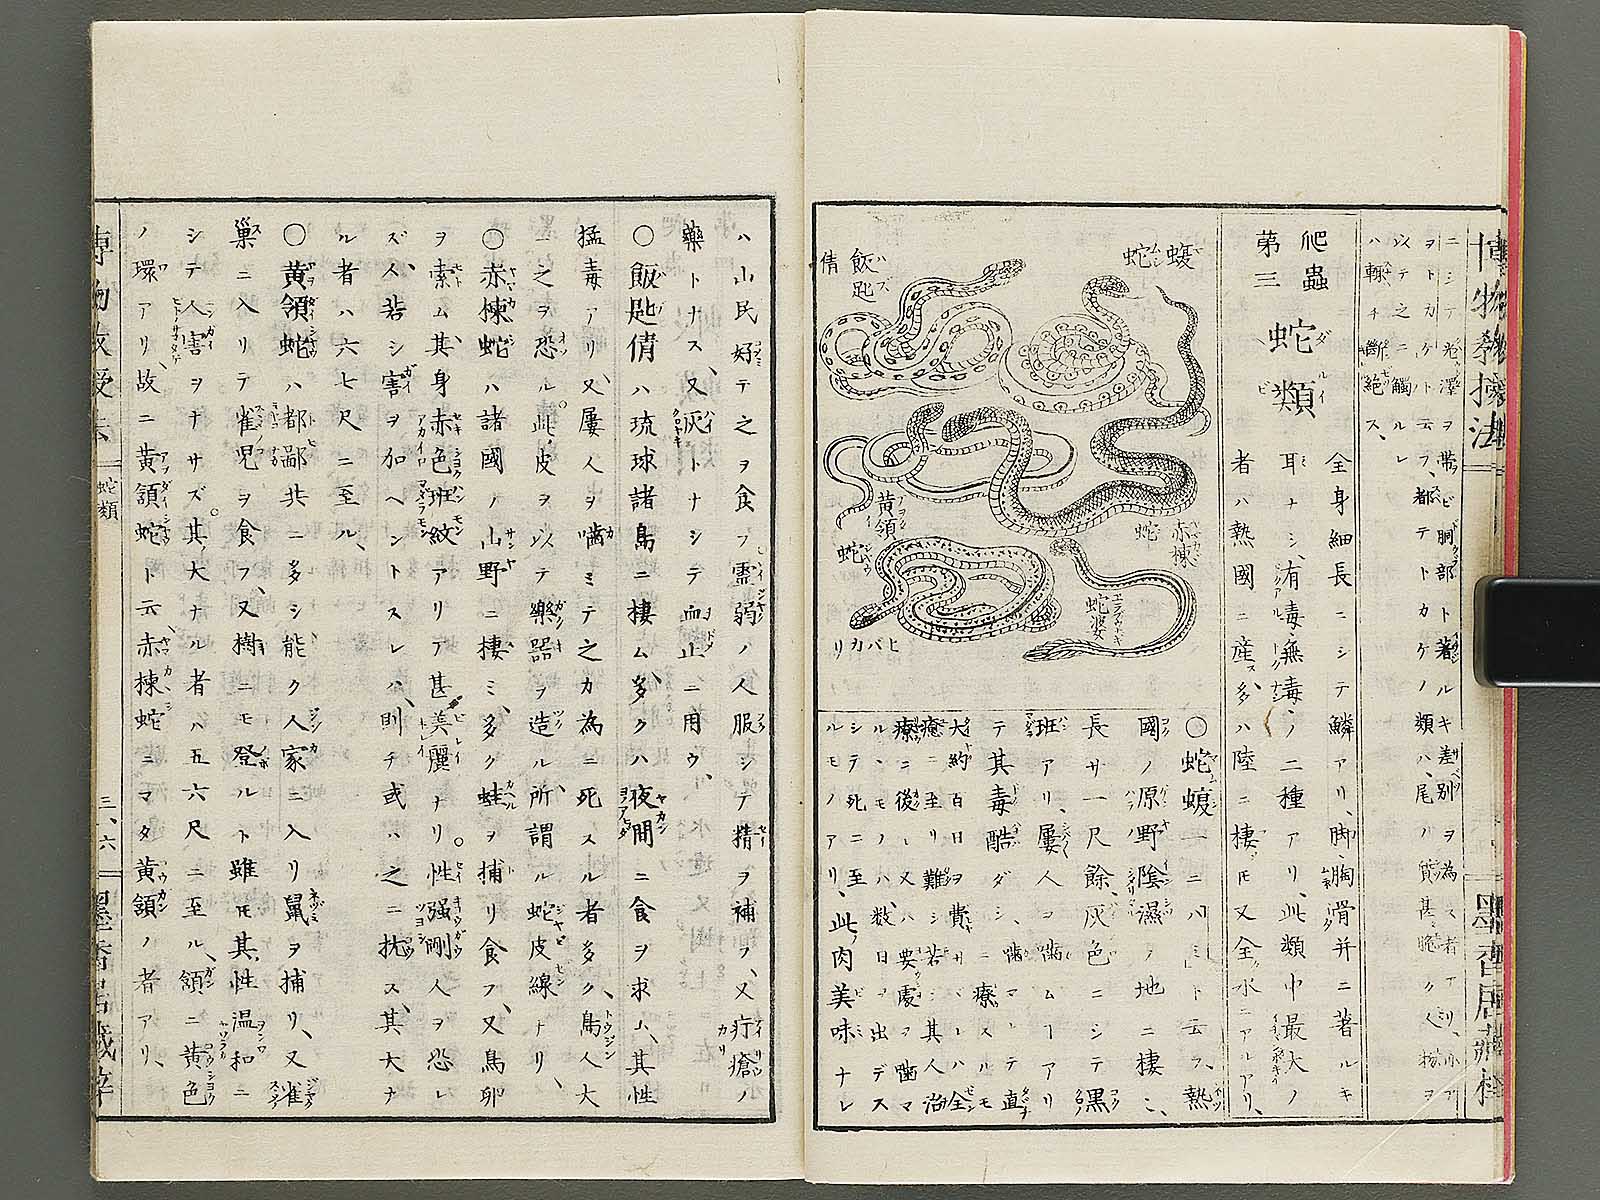 博物教授法
ニシテ光澤ヲ帶ビ胴部ト著ルキ差別ヲ為ス者アリ、
ヲトカケト云フ、都テトカケノ類ハ、尾ノ質甚ダ脆ク人物ヲ
以テ之ニ觸ルレ
ハ輙チ斷絶ス、
爬蟲
第三
蛇類
全身細長ニシテ鱗アリ、脚、胸滑并ニ著ルキ
耳ナシ、有毒、無毒ノ二種アリ、此類中最大ノ
者ハ熱國ニ産ス、多ハ陸ニ棲ドモ又全ク水ニアルアリ、
蝮蛇
飯匙倩
黄領蛇
赤楝蛇
蛇婆
ヒバカリ
〇蛇蝮一ニハミト云フ、熱
國ノ原野陰濕ノ地ニ棲ミ、
長サ一尺餘、灰色ニシテ黒
班アリ、屢人ヲ噛ムーアリ
テ其毒酷ダシ、噛マレテ直
ニ療スルモ大約百日ヲ費サバレハ全
癒ニ至リ難シ若シ其人治
療ニ後レ又ハ要處ヲ噛マ
ルヽモノハ、数日ヲ出デス
シテ死ニ至
ルモノアリ、此肉美味ナレ
ハ山民好テ之ヲ食フ霊弱ノ人服シテ精ヲ補フ、又疔瘡ノ
藥トナス、又灰トナシテ血止ニ用ウ、
〇飯匙倩ハ琉球諸島ニ棲ム、多クハ夜間ニ食ヲ求ム、其性
猛毒アリ、又屢人ヲ噛ミテ之カ為ニ死スル者多ク、島人大
ニ之ヲ恐ル。此皮ヲ以テ樂器ヲ造ル、所謂ル蛇皮線ナリ、
〇赤楝蛇ハ諸國ノ山野ニ棲ミ、多ク蛙ヲ捕リ食フ、又鳥卵
ヲ索ム、其身赤色班紋アリテ甚美麗ナリ。性强剛人ヲ恐レ
ズ、人若シ害ヲ加ヘントスレハ、則チ或ハ之ニ抗ス、其大ナ
ル者ハ六七尺ニ至ル、
〇黄領蛇ハ都鄙共ニ多シ能ク人家ニ入リ鼠ヲ捕リ、又雀
巢ニ入リテ雀児ヲ食フ、又樹ニモ登ルト雖モ其性温和ニ
シテ人害ヲナサズ。其大ナル者ハ五六尺ニ至ル、領ニ黄色
ノ環アリ、故ニ黄領蛇ト云赤楝蛇ニマタ黄頷ノ者アリ、
蛇類
三、六